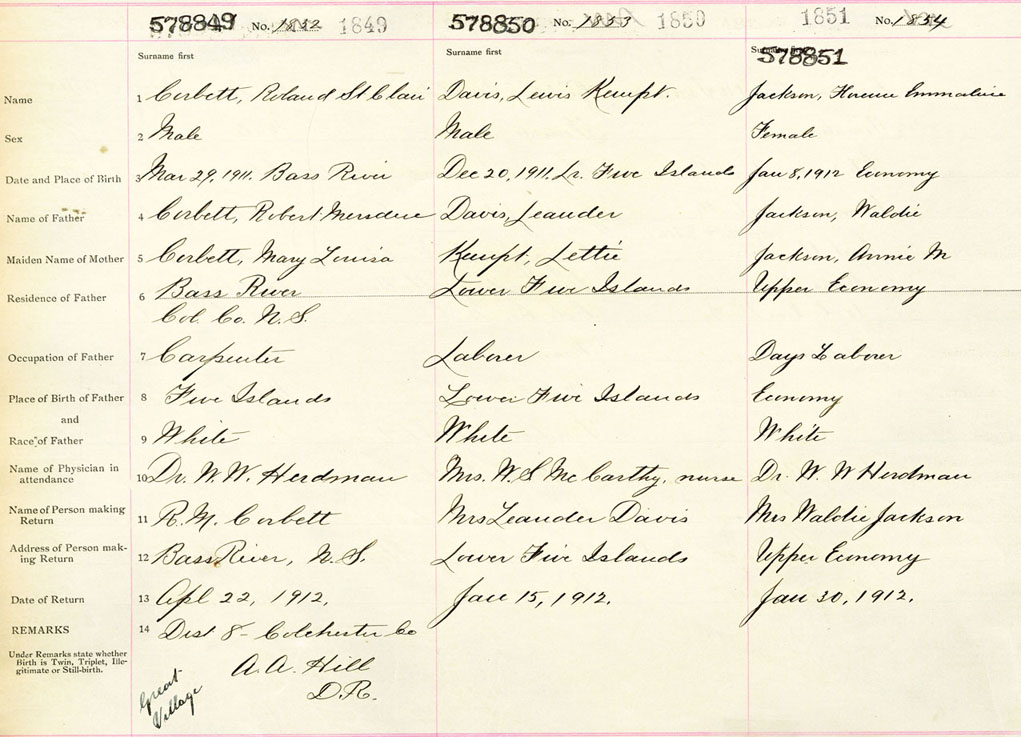 578849 No. 1832 1849 578850 No. 1833 1850 1851 No. 1834
Surname first Surname first 578851
Name 1 Corbett, Roland St Clair Davis, Lewis Kempt. Jackson, Florence Emmaline
Sex 2 Male Male Female
Date and Place of Birth 3 Mar 29, 1911. Bass River Dec 20, 1911. Lr. Five Islands Jan 8, 1912 Economy
Name of Father 4 Corbett, Robert Davis, Leander Jackson, Waldie
Maiden Name of Mother 5 Corbett, Mary Louisa Kempt, Lettie Jackson, Annie M
Residence of Father 6 Bass River Lower Five Islands Upper Economy
Col. Co. N.S.
Occupation of Father 7 Carpenter Laborer Days Laborer
Place of Birth of Father 8 Five Islands Lower Five Islands Economy
and
Race of Father 9 White White White
Name of Physician in
attendance 10 Dr. W. W. Herdman Mrs. W. S McCarthy, nurse Dr. W. W Herdman
Name of Person making
Return 11 R. M. Corbett Mrs Leander Davis Mrs Waldie Jackson
Address of Person mak-
ing Return 12 Bass River, N. S. Lower Five Islands Upper Economy
Date of Return 13 Apl 22, 1912. Jan 15, 1912. Jan 30, 1912.
REMARKS 14 Dist 8 - Colchester Co
Under Remarks state whether
Birth is Twin, Triplet, Ille-
gitimate or Still-birth.
A. A. Hill
D.R.
Great
Village